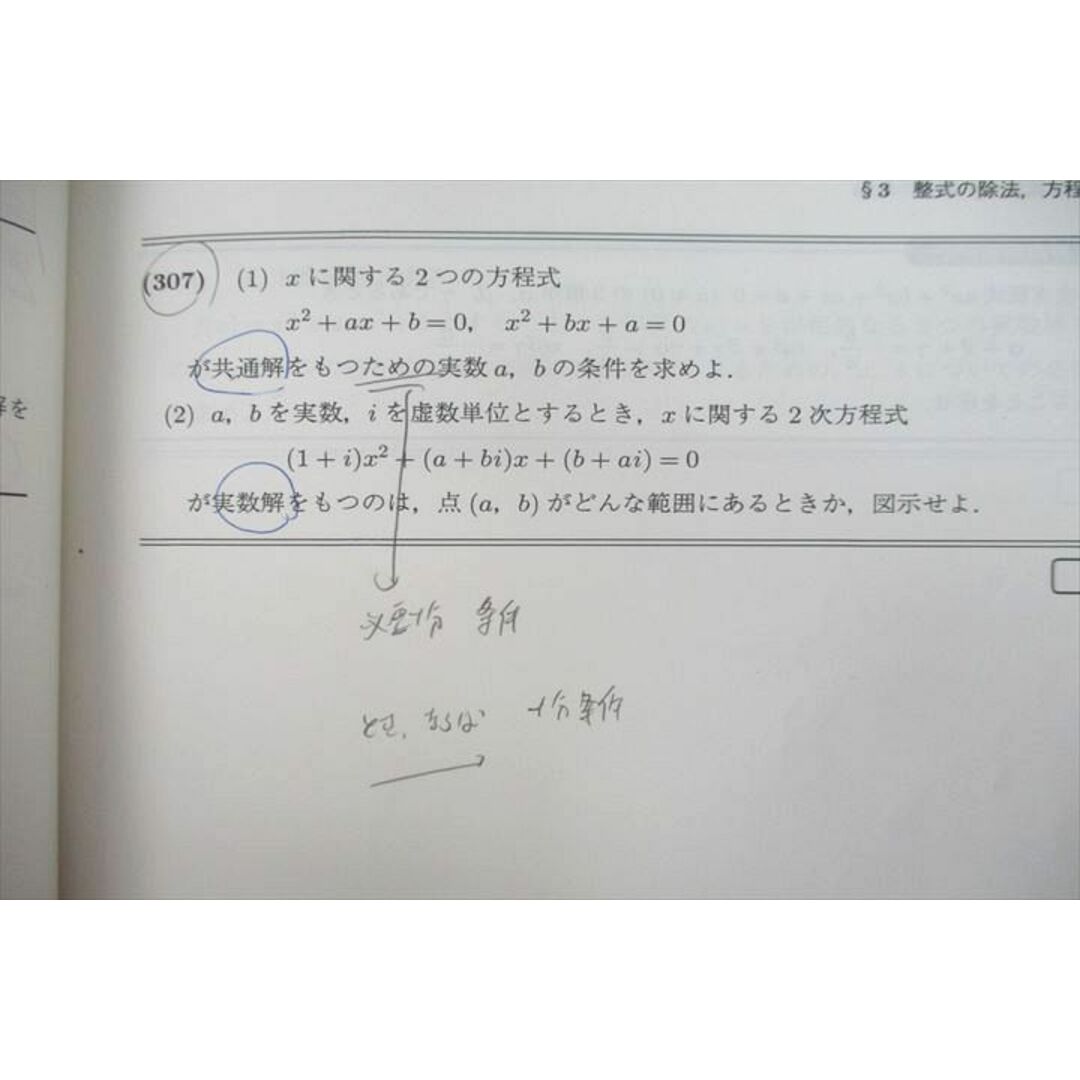 §3 整式の除法，方程
(307) (1) xに関する2つの方程式
x² + ax + b = 0, x² + bx + a = 0
が共通解をもつための実数a, bの条件を求めよ．
(2) a, bを実数，iを虚数単位とするとき，xに関する2次方程式
(1 + i)x² + (a + bi)x + (b + ai) = 0
が実数解をもつのは，点(a, b)がどんな範囲にあるときか，図示せよ．
解を
必要十分 条件
とき，ならば 十分条件